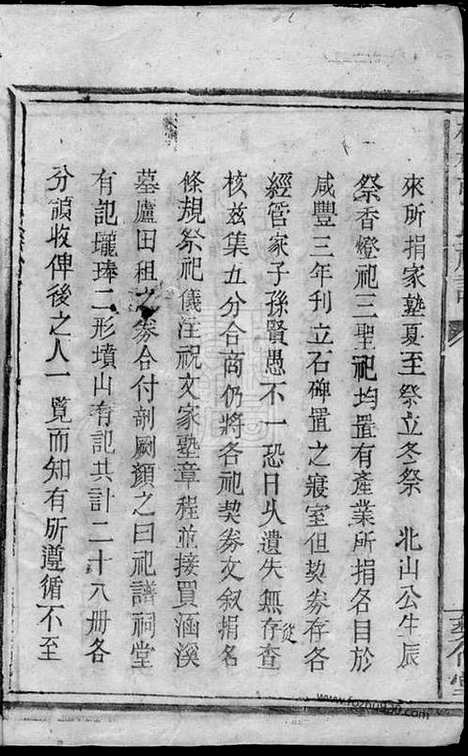 來所捐家塾夏至祭立冬祭　北山公生辰
祭香燈祀三聖祀均置有產業所捐名目於
咸豐三年刋立石碑置之寢室但契劵存各
經管家子孫賢愚不一恐日乆遺失無從存查
核兹集五分合商仍將各祀契劵文叙捐名
條規祭祀儀注祝文家塾章程並接買涵溪
墓廬田租之劵合付剞劂顏之曰祀譜祠堂
有記瓏瑧二形墳山有記共計二十八册各
分領收俾後之人一覽而知有所遵循不至